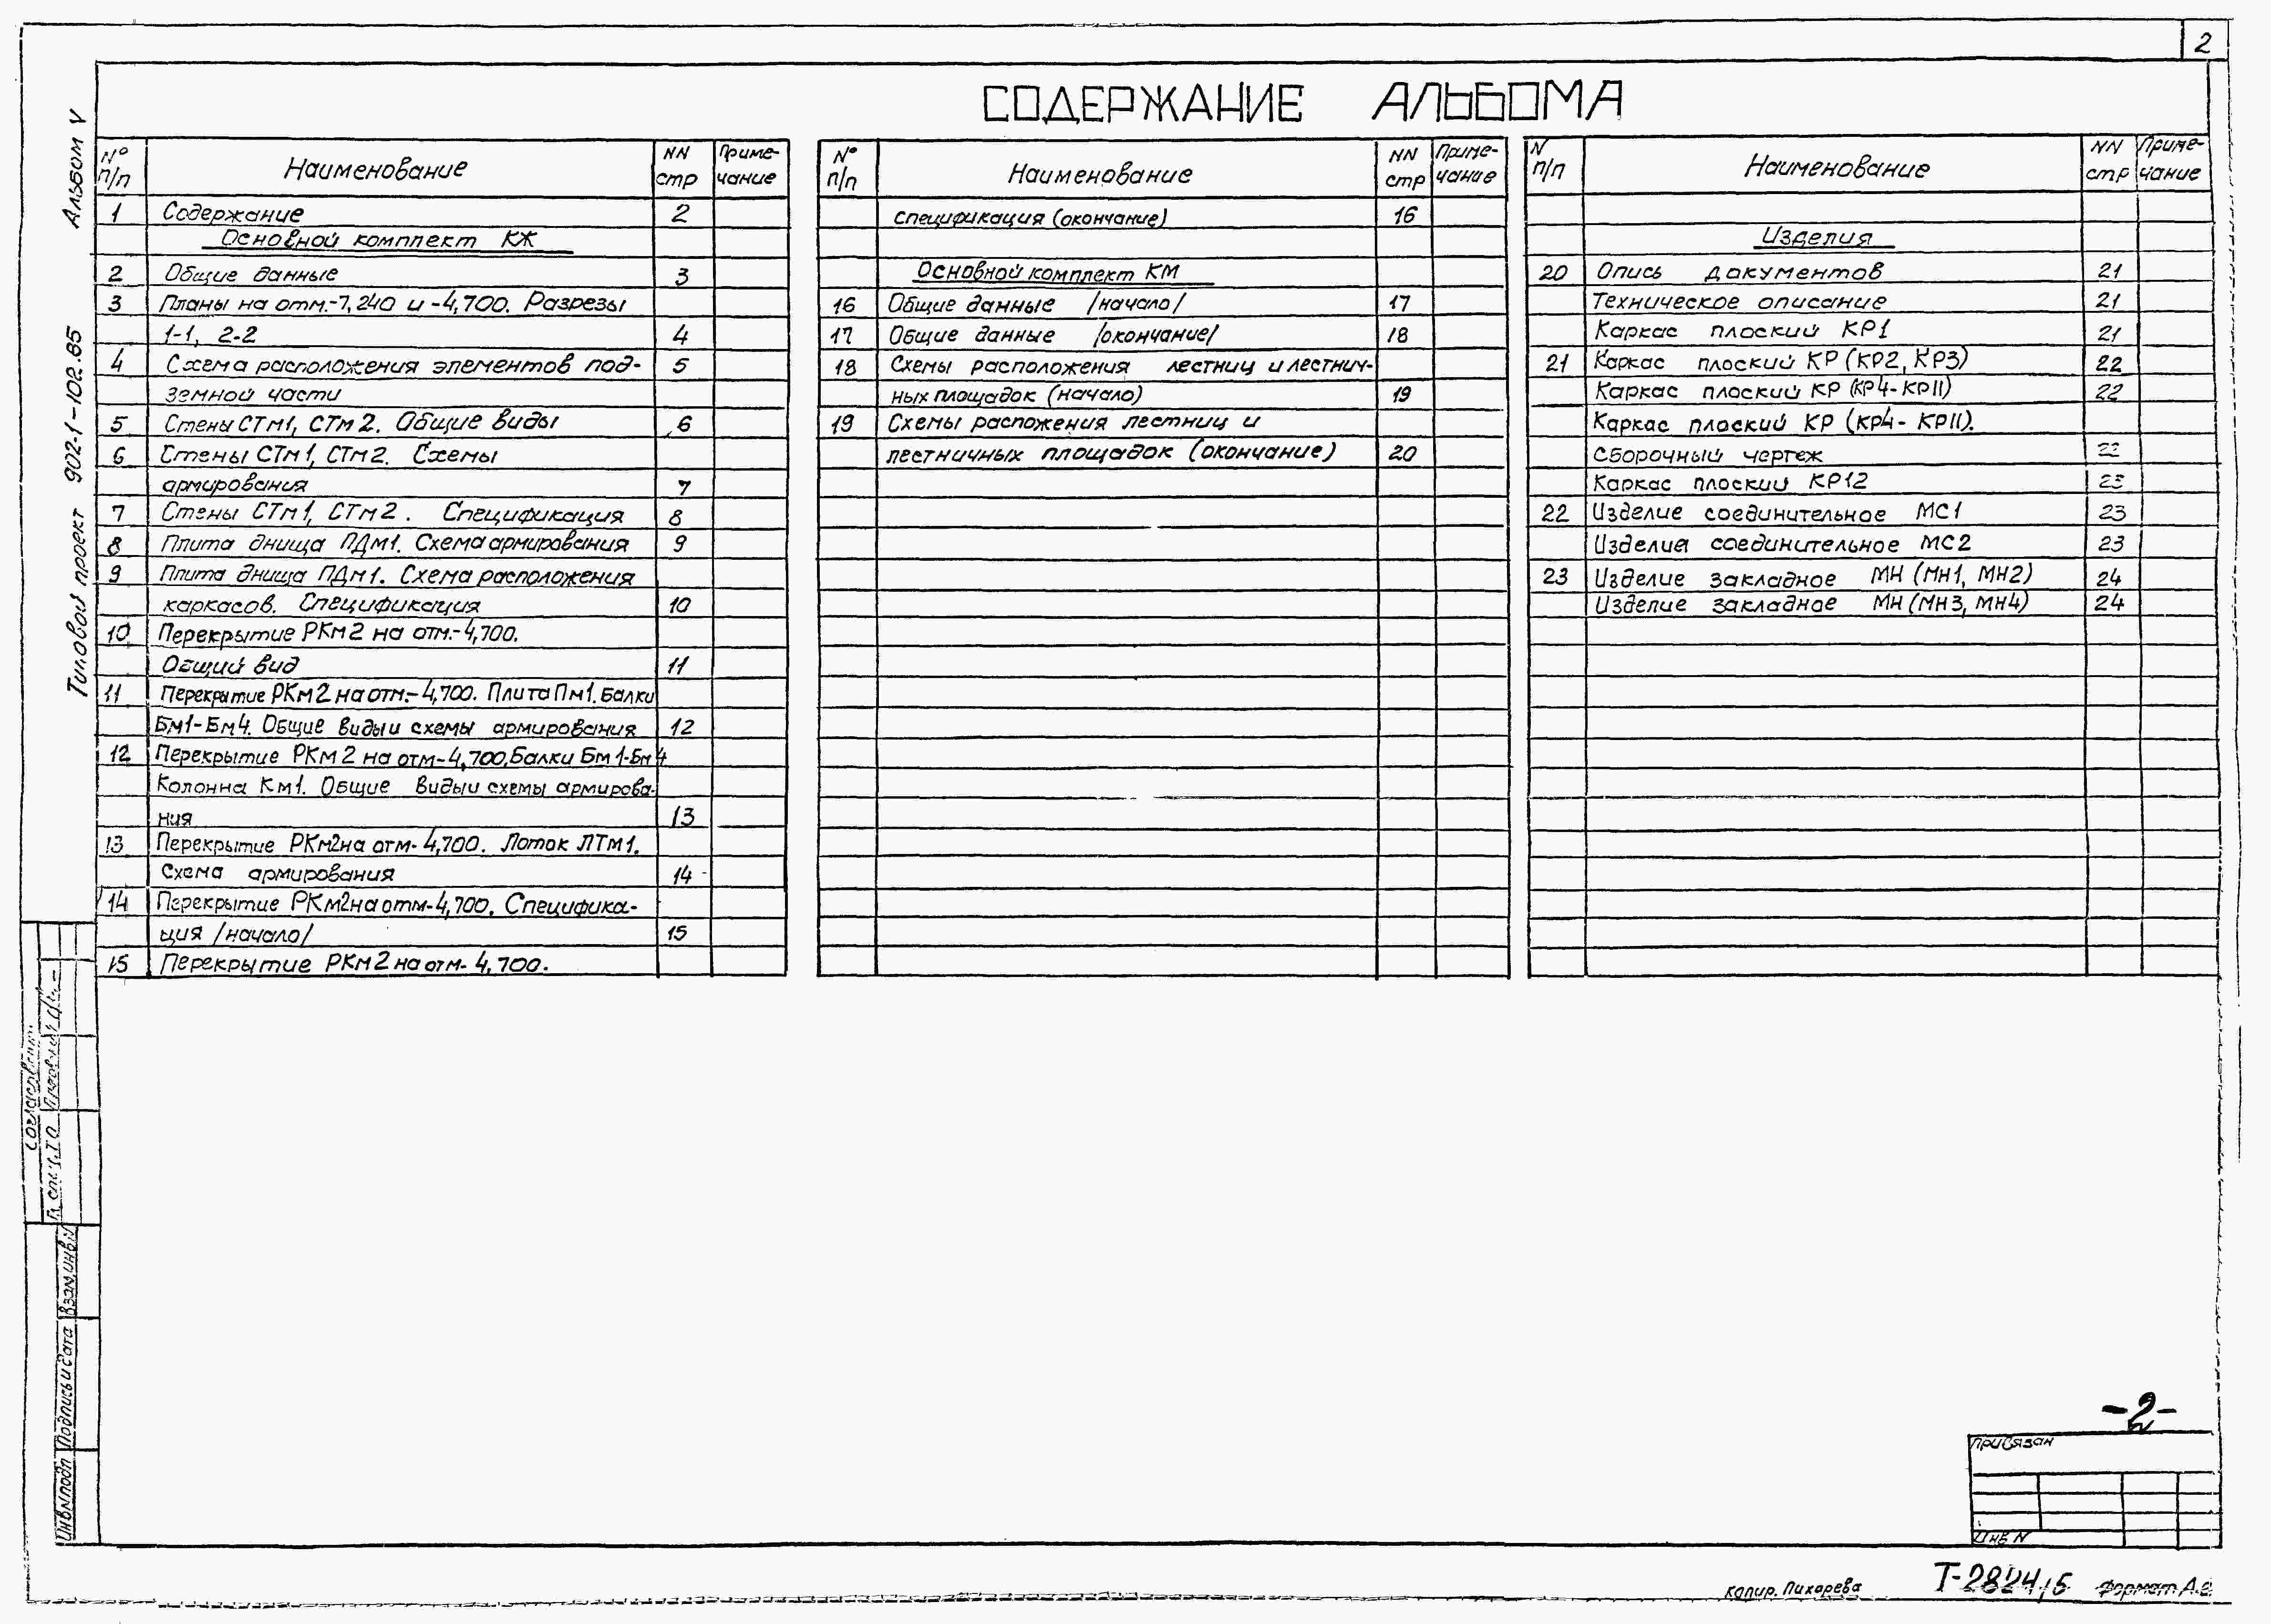 2
СОДЕРЖАНИЕ АЛЬБОМА
Альбом V
Типовой проект 902-1-102.85
№ п/п Наименование NN стр Приме-чание
1 Содержание 2
Основной комплект КЖ
2 Общие данные 3
3 Планы на отм.-7,240 и -4,700. Разрезы
1-1, 2-2 4
4 Схема расположения элементов под- 5
земной части
5 Стены СТм1, СТм2. Общие виды 6
6 Стены СТм1, СТм2. Схемы
армирования 7
7 Стены СТм1, СТм2. Спецификация 8
8 Плита днища ПДм1. Схема армирования 9
9 Плита днища ПДм1. Схема расположения
каркасов. Спецификация 10
10 Перекрытие РКм2 на отм.-4,700.
Общий вид 11
11 Перекрытие РКм2 на отм.-4,700. Плита Пм1. Балки
Бм1-Бм4. Общие виды и схемы армирования 12
12 Перекрытие РКм2 на отм-4,700, Балки Бм1-Бм4
Колонна Км1. Общие виды и схемы армирова-
ния 13
13 Перекрытие РКм2 на отм-4,700. Лоток ЛТм1.
Схема армирования 14
14 Перекрытие РКм2 на отм-4,700. Специфика-
ция /начало/ 15
15 Перекрытие РКм2 на отм-4,700.
№ п/п Наименование NN стр Приме-чание
спецификация (окончание) 16
Основной комплект КМ
16 Общие данные /начало/ 17
17 Общие данные /окончание/ 18
18 Схемы расположения лестниц и лестнич-
ных площадок (начало) 19
19 Схемы расположения лестниц и
лестничных площадок (окончание) 20
N п/п Наименование NN стр Приме-чание
Изделия
20 Опись документов 21
Техническое описание 21
Каркас плоский КР1 21
21 Каркас плоский КР (КР2, КР3) 22
Каркас плоский КР (КР4-КР11) 22
Каркас плоский КР (КР4-КР11).
Сборочный чертеж
Каркас плоский КР12 23
22 Изделие соединительное МС1 23
Изделия соединительное МС2 23
23 Изделие закладное МН (МН1, МН2) 24
Изделие закладное МН (МН3, МН4) 24
Согласовано
Взам.инв.N
Подпись и дата
Инв.N подл
-2-
Привязан
Инв N
копир. Пихорева
Т-2824,5
Формат А2